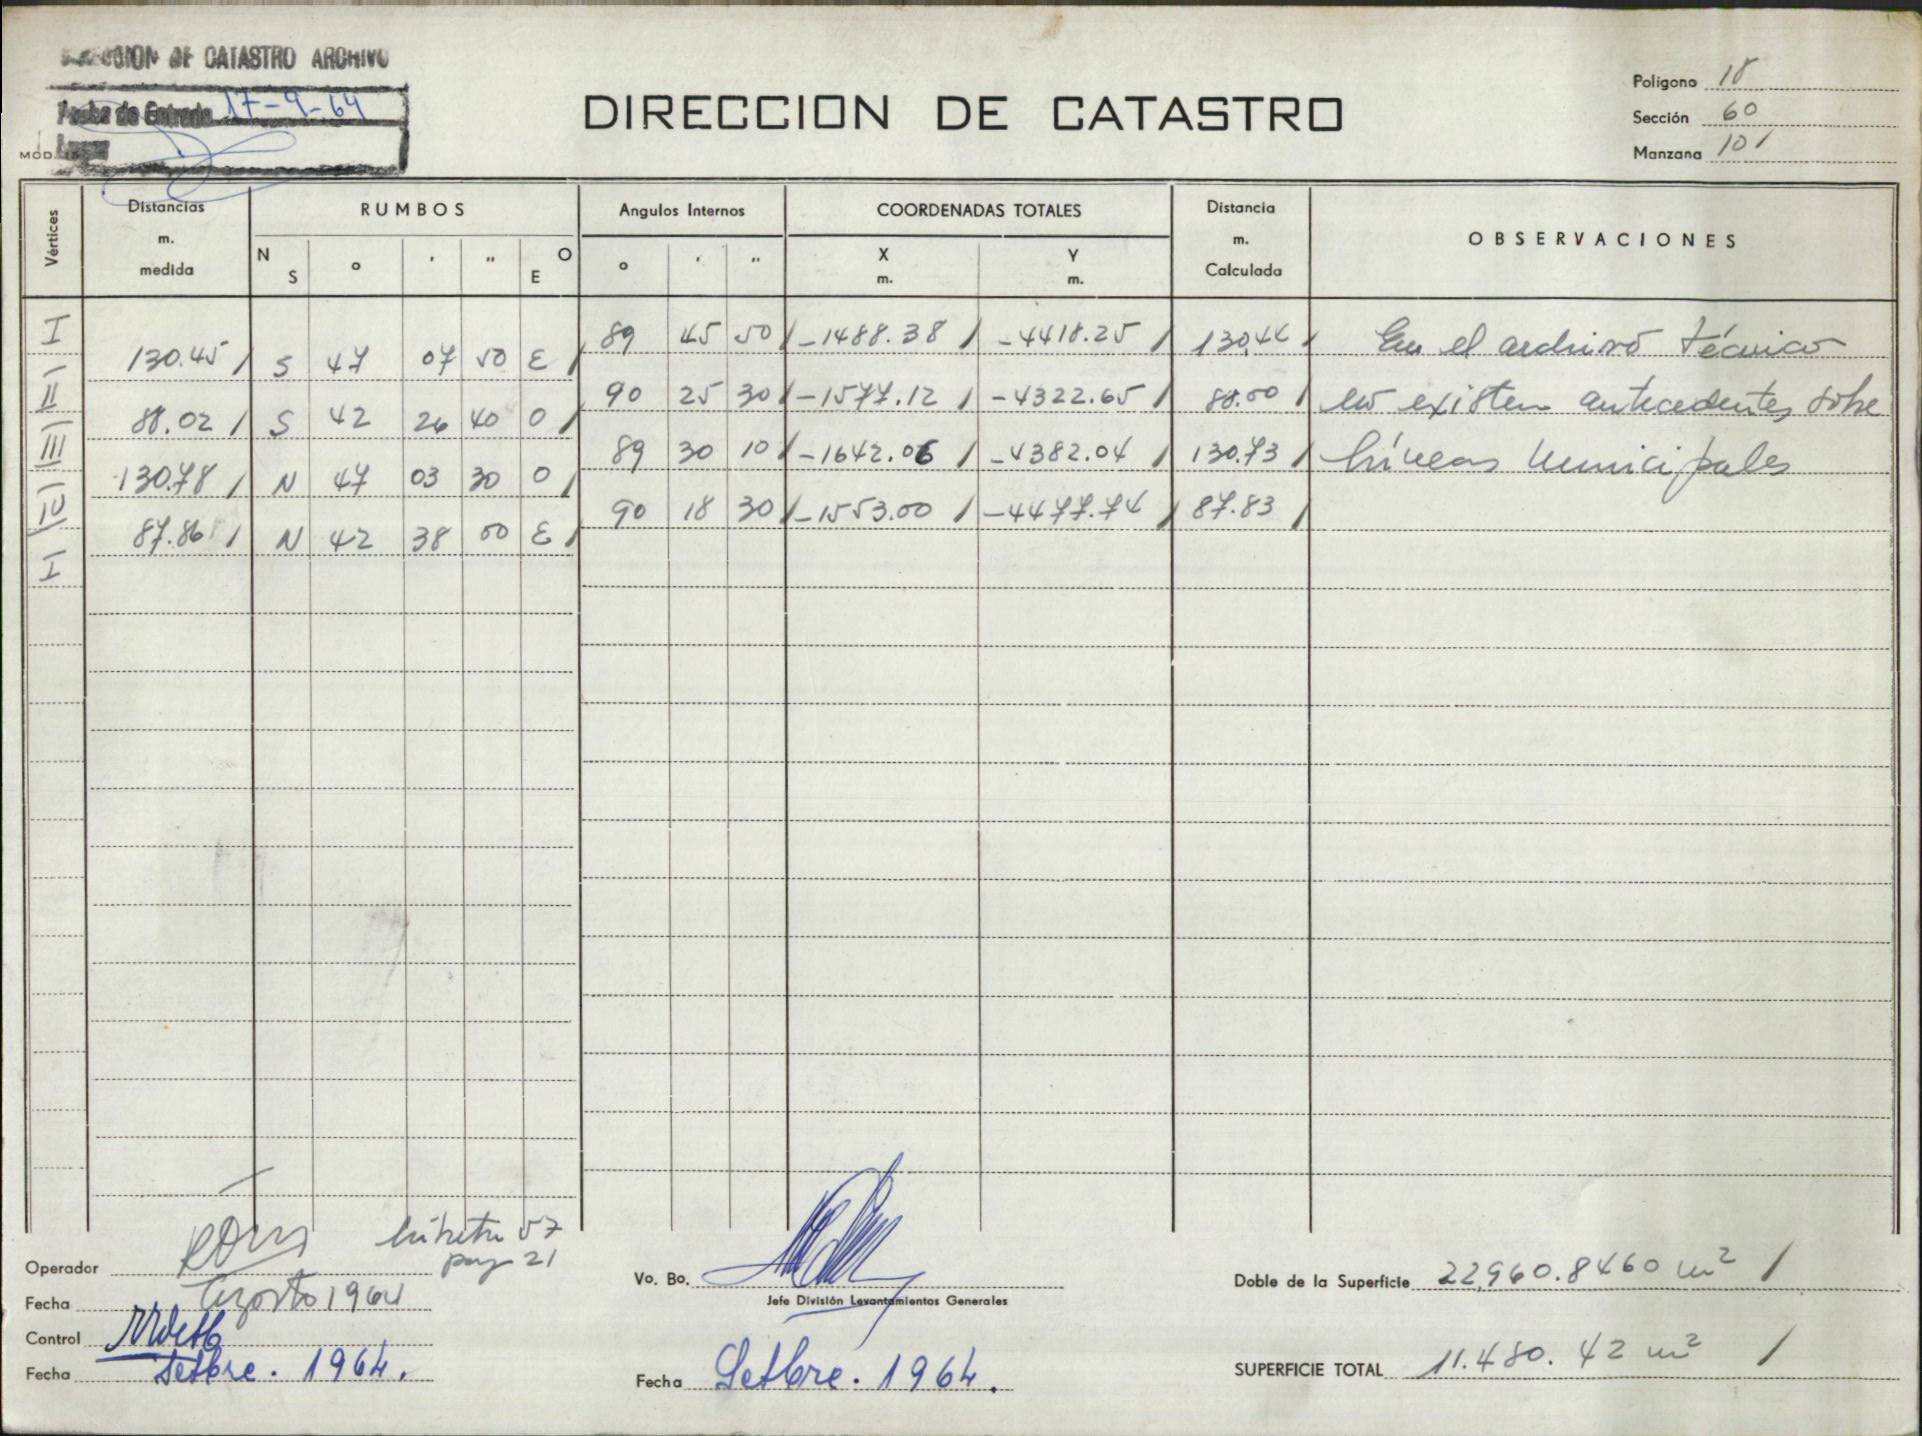 DIRECCION DE CATASTRO ARCHIVO
Fecha de Entrada 17-9-64
MOD.
DIRECCION DE CATASTRO
Polígono 18
Sección 60
Manzana 101
Vértices
Distancias m. medida
RUMBOS
N S ° ' " O E
Angulos Internos
° ' "
COORDENADAS TOTALES
X m. Y m.
Distancia m. Calculada
OBSERVACIONES
I 89 45 50 -1488.38 -4418.25 130.44 En el archivo técnico
130.45 S 47 07 50 E
II 90 25 30 -1577.12 -4322.65 88.00 no existen antecedentes sobre
88.02 S 42 26 40 O
III 89 30 10 -1642.06 -4382.04 130.73 líneas municipales
130.78 N 47 03 30 O
IV 90 18 30 -1553.00 -4477.74 87.83
87.86 N 42 38 00 E
I
Operador
libreta 57
pag 21
Fecha Agosto 1964
Control
Fecha Setbre. 1964.
Vo. Bo.
Jefe División Levantamientos Generales
Fecha Setbre. 1964.
Doble de la Superficie 22,960.8460 m²
SUPERFICIE TOTAL 11.480.42 m²